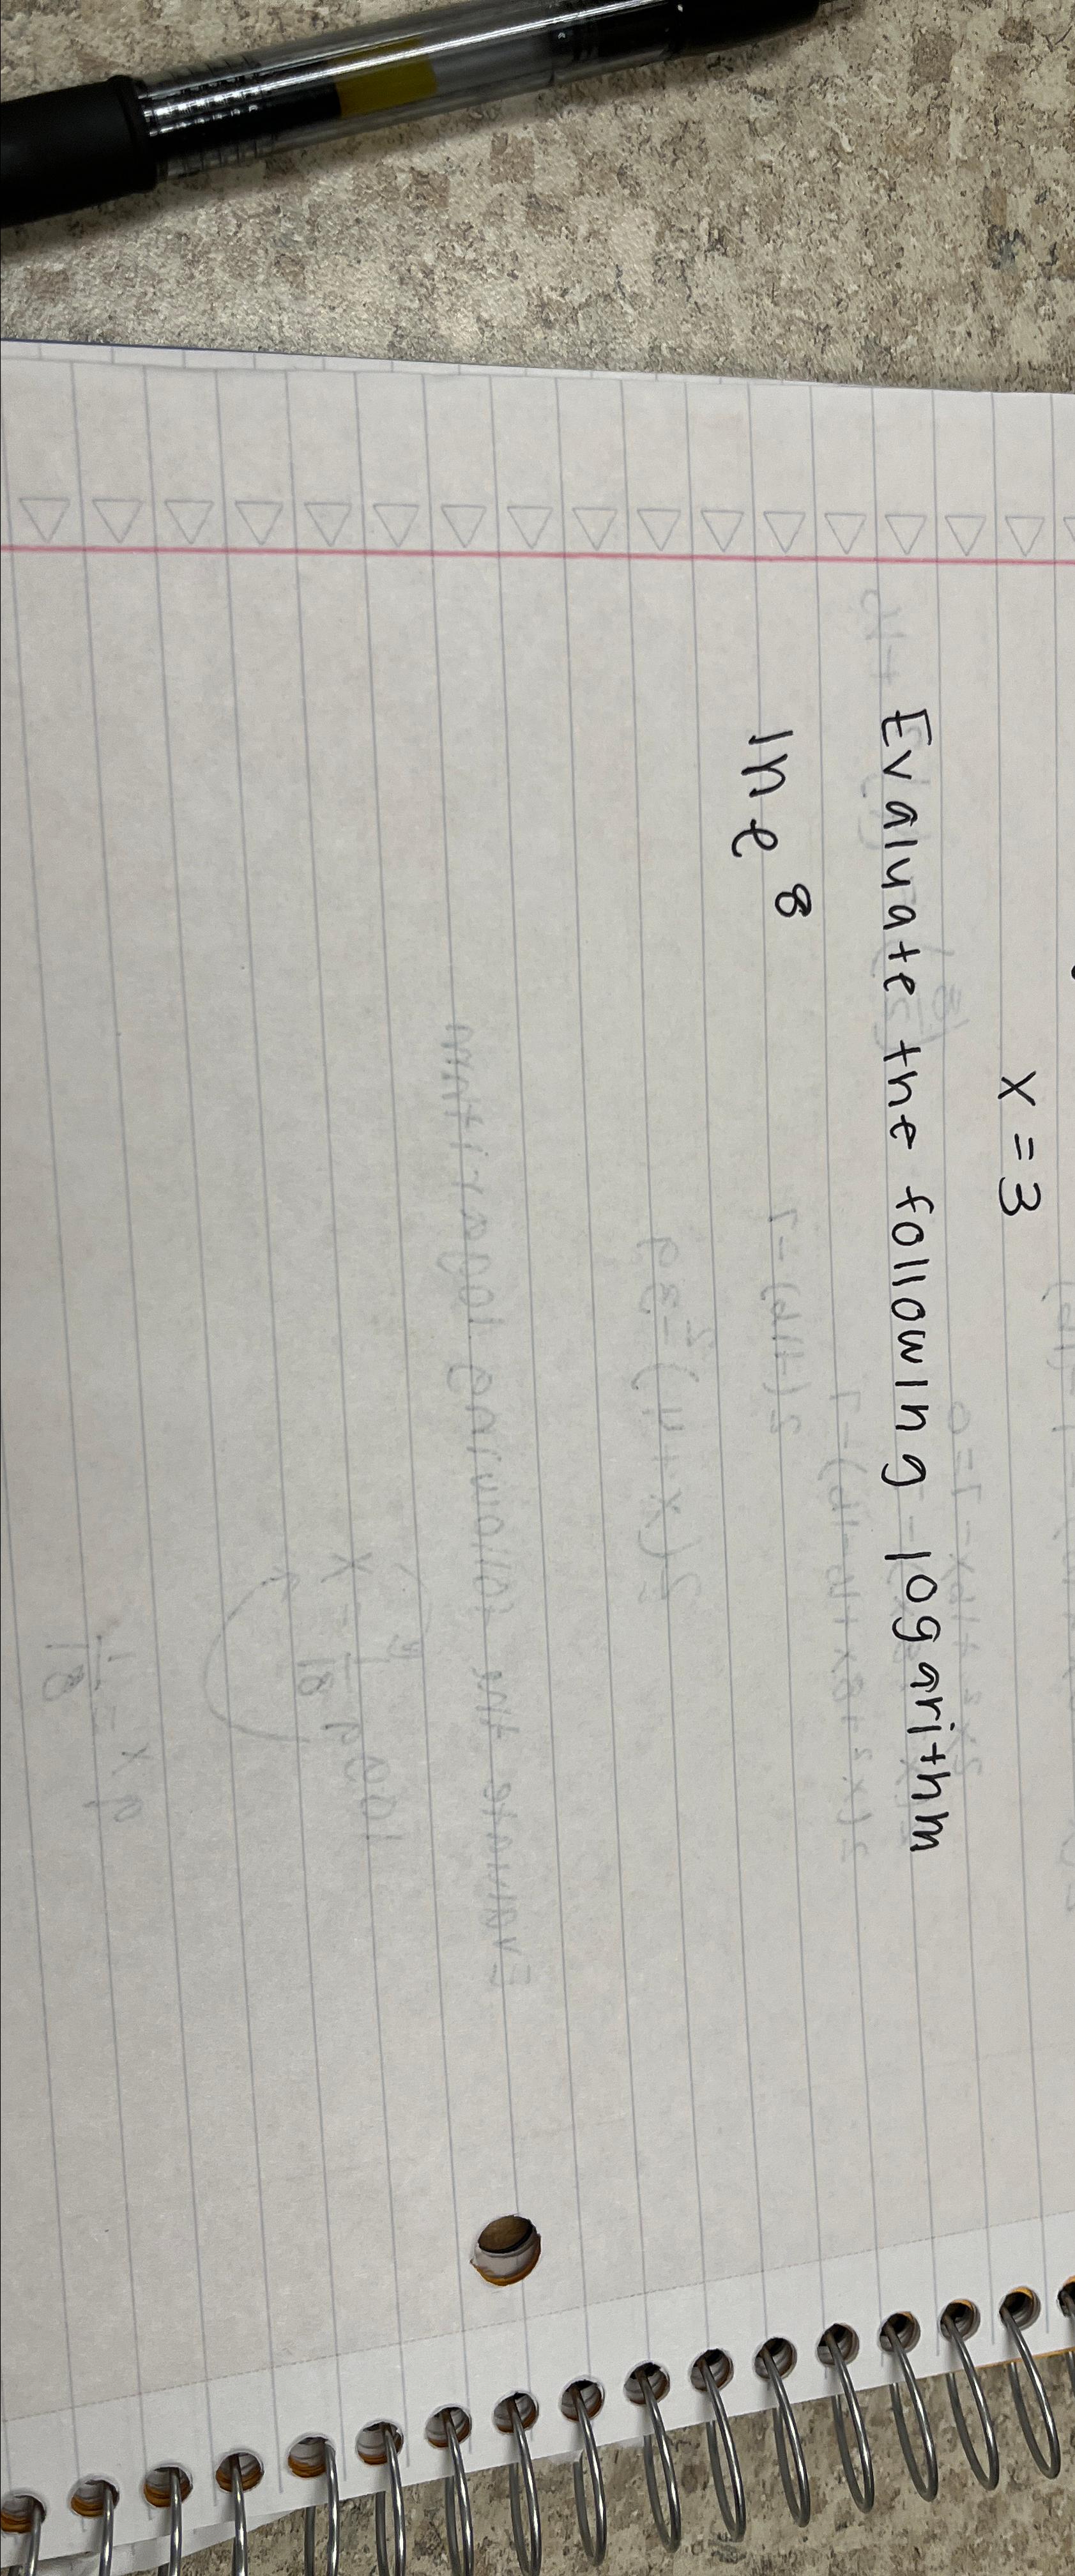 x = 3
Evaluate the following logarithm
ln e⁸